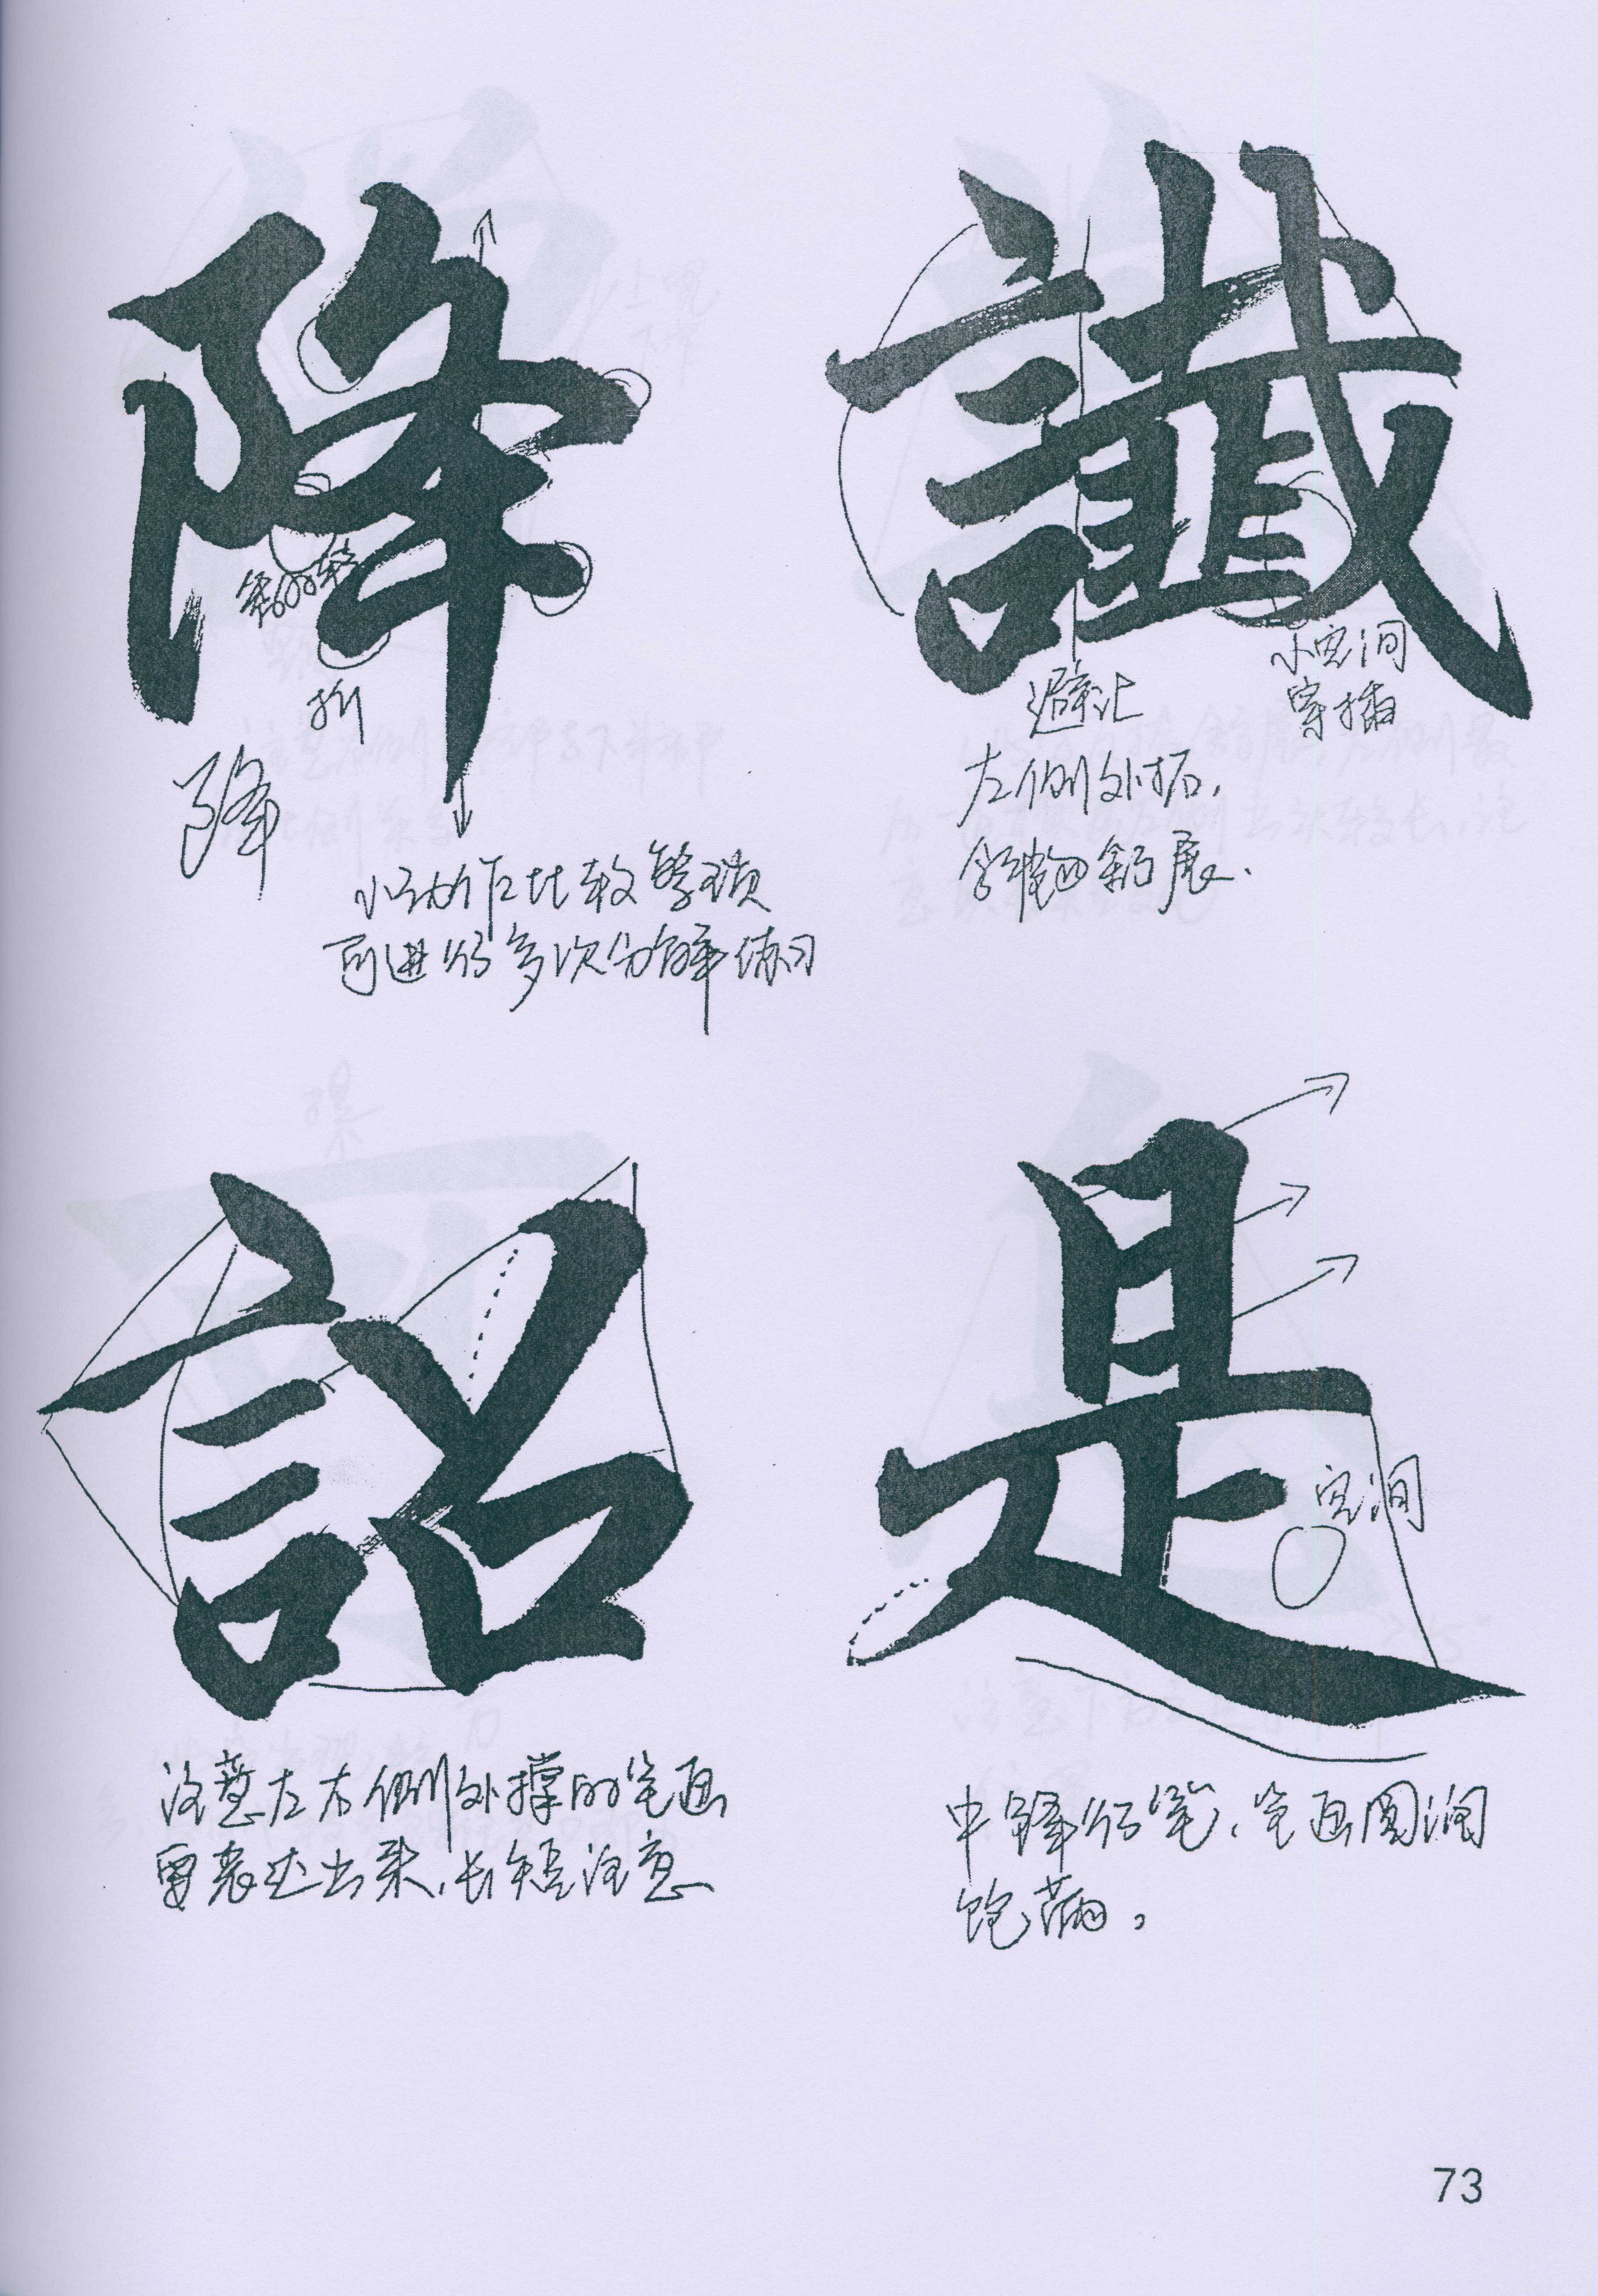 降
折
降
小动作比较繁琐
可进行多次分解练习
讖
避让
小空间
穿插
左侧外拓,
舒展.
詔
注意左右侧外撑的笔画
要表达出来,长短注意
是
空间
中锋行笔,笔画圆润
饱满。
73